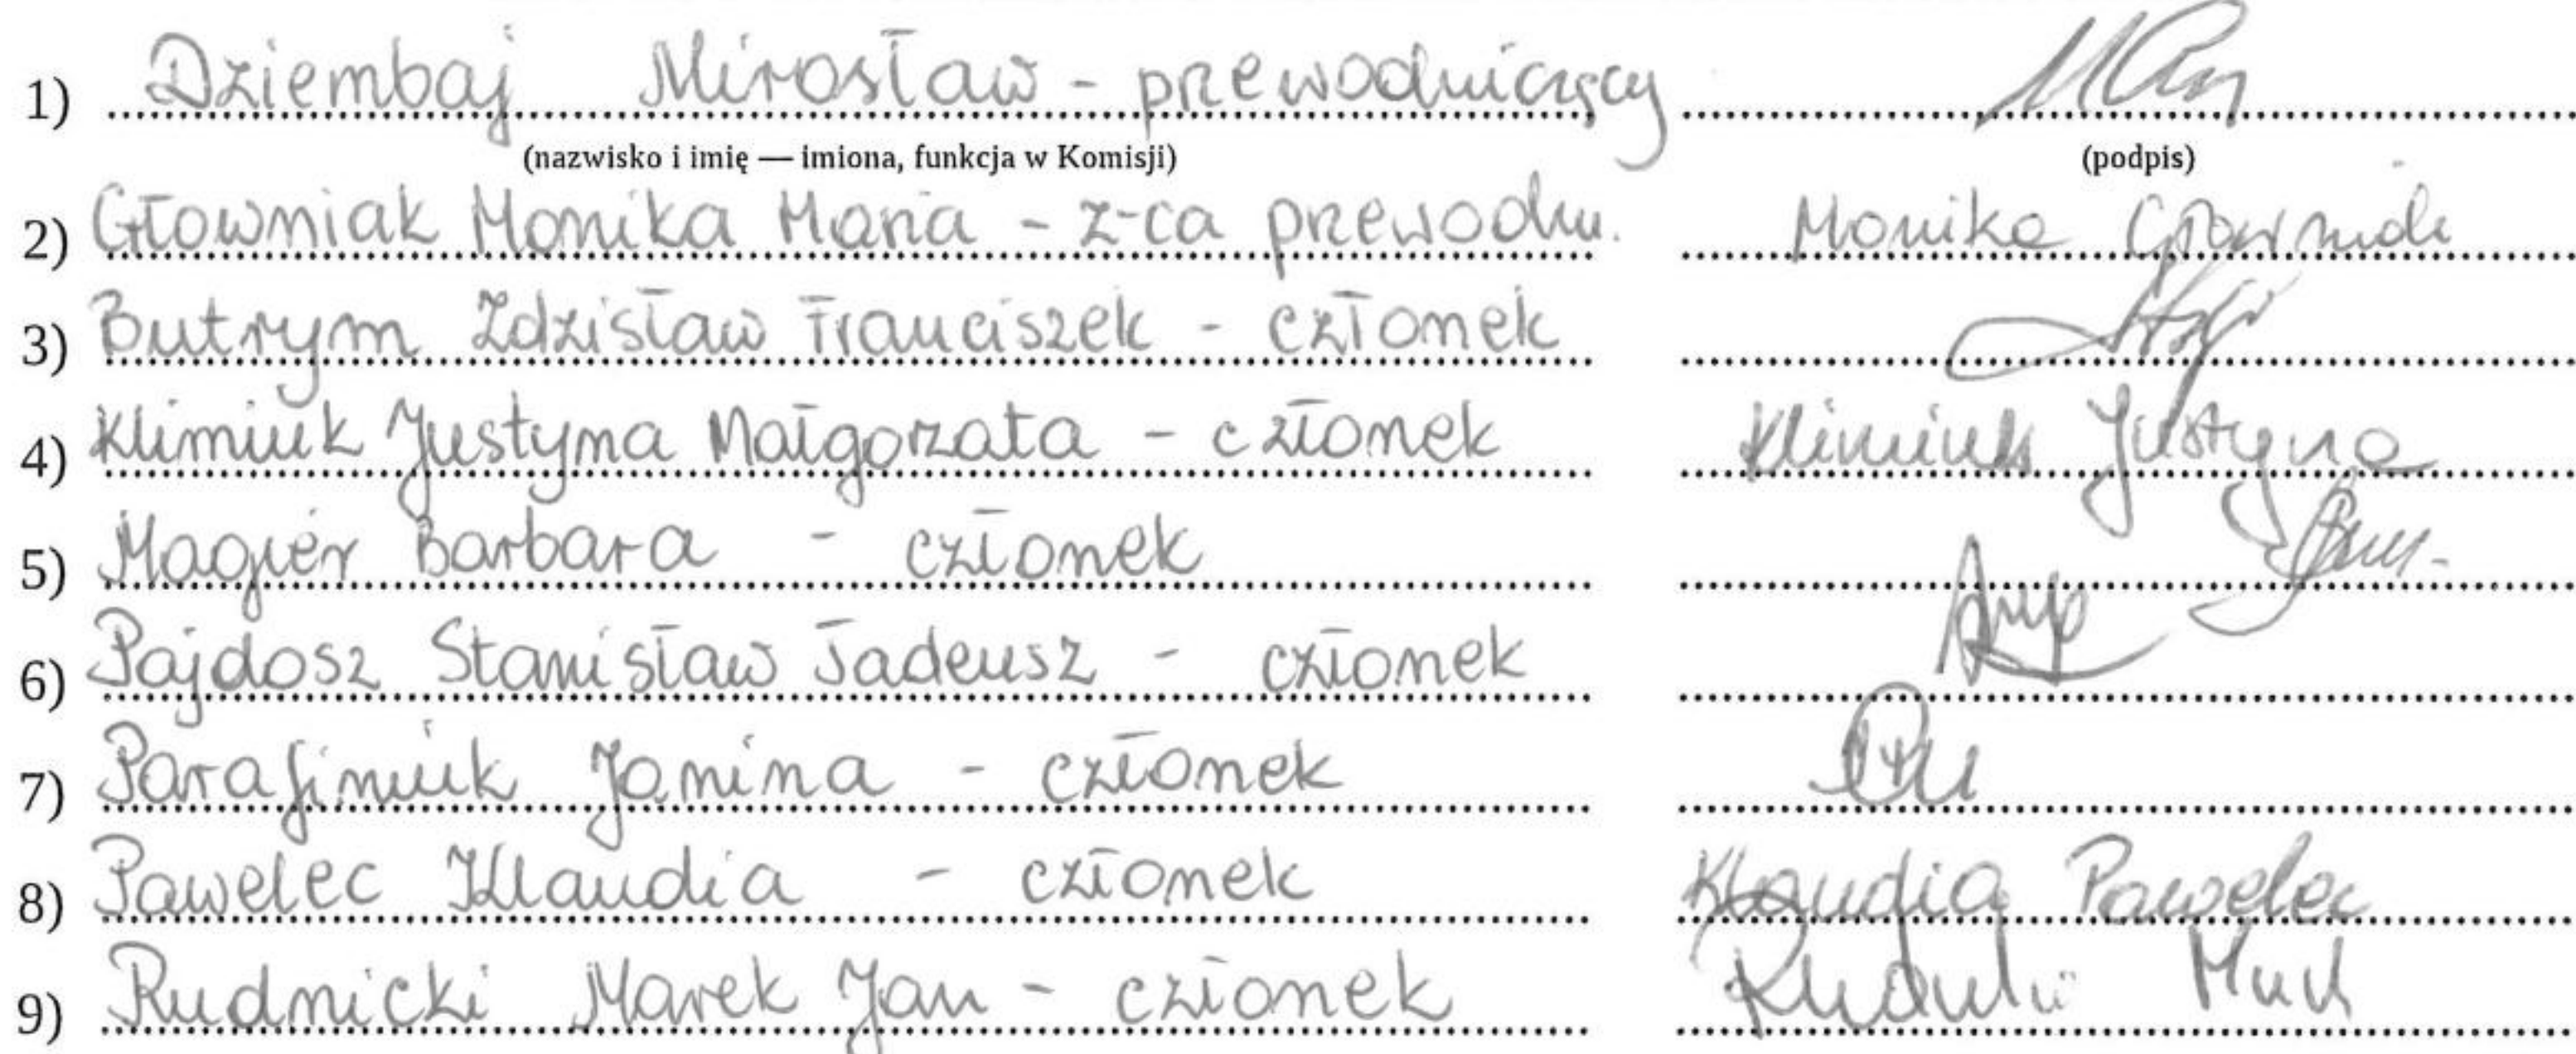 1) Dziembaj Mirosław - przewodniczący
(nazwisko i imię — imiona, funkcja w Komisji) (podpis)
2) Głowniak Monika Maria - z-ca przewodn. Monika Głowniak
3) Butrym Zdzisław Franciszek - członek
4) Klimiuk Justyna Małgorzata - członek Klimiuk Justyna
5) Magier Barbara - członek
6) Pajdosz Stanisław Tadeusz - członek
7) Parafiniuk Janina - członek
8) Pawelec Klaudia - członek Klaudia Pawelec
9) Rudnicki Marek Jan - członek